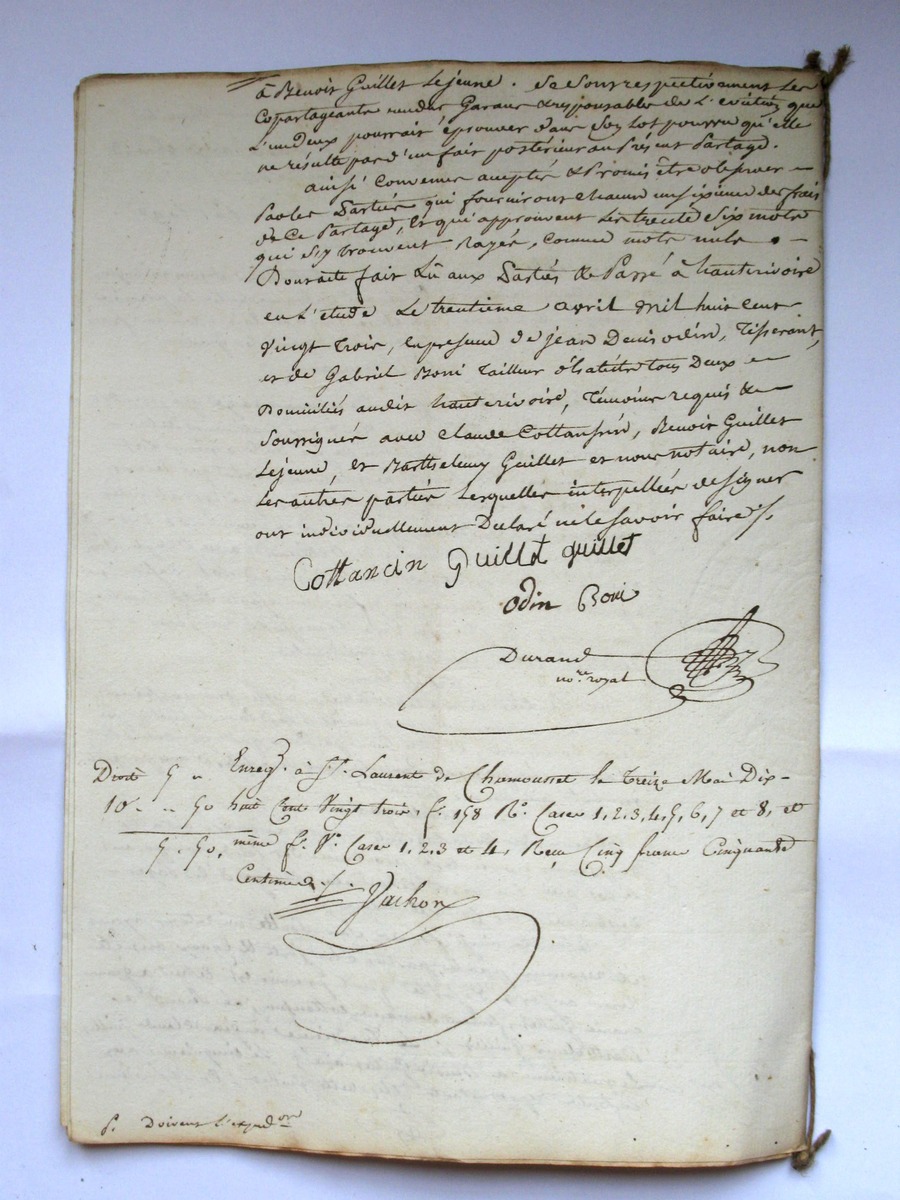 à Benoit Guillet Lejeune. Se sont respectivement Les
Copartageants rendus Garans & responsable de L'eviction que
L'un Deux pourrait éprouver dans Son lot pourvu qu'elle
ne résulte pas d'un fait postérieur au Présent Partage.
ainsi Convenu accepté & Promis être observer
Par les Partiés qui fourniront chacun un sixieme des frais
de Ce Partage, Et qui approuvent Les trente Six mots
qui s'y trouvent Rayés, comme mots nuls.
Dont acte fait Lû aux Partiés & Passé à hauterivoire
en L'étude Le trentieme avril mil huit cent
vingt trois, en presence de jean Denis odin, Tisserant,
et de Gabriel Boni Tailleur d'habits tous Deux
Domiciliés audit hauterivoire, Témoins requis &
Soussignés avec Claude Cottansin, Benoit Guillet
Lejeune, Et Barthelemy Guillet et nous notaire, non
Les autres partiés Lesquelles interpellées de signer
ont individuellement Déclaré ne le Savoir faire /.
Cottancin Guillet guillet
odin Boni
Durand
no.re royal
Droits 5 " Enreg.é à St. Laurent de Chamousset le Treize Mai Dix-
10e .. 50 huit Cent Vingt trois, f.o 158 R.o Cases 1, 2, 3, 4, 5, 6, 7 et 8, et
5. 50, même f.o V.o Cases 1, 2, 3 et 4, Reçu Cinq francs Cinquante
Centimes /.
Vachon
P. Doivent L'expedon